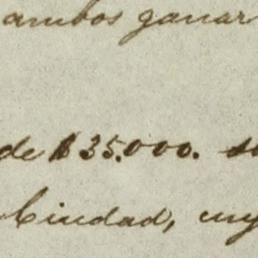 ambos ganar
de $35.000. su
Ciudad, cuy